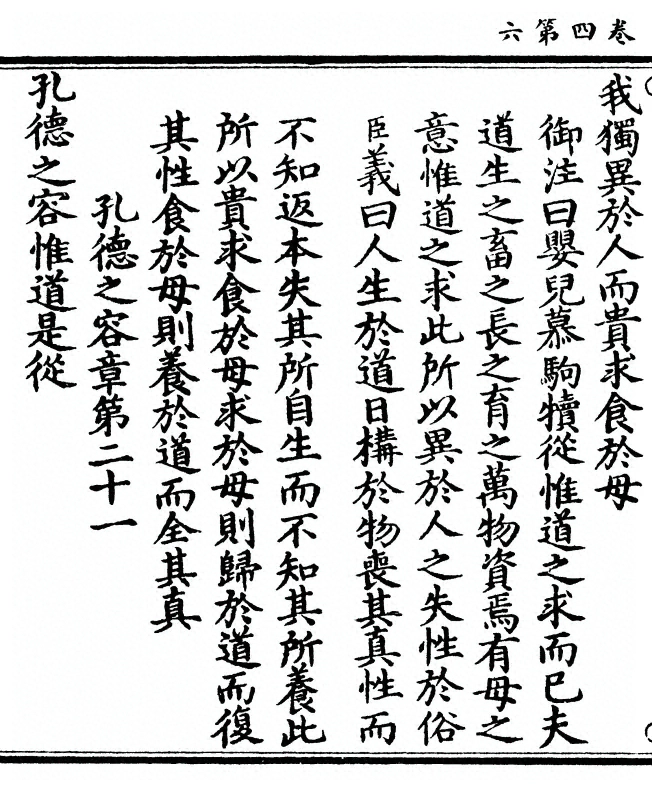 卷四第六
我獨異於人而貴求食於母
御注曰嬰兒慕駒犢從惟道之求而已夫
道生之畜之長之育之萬物資焉有母之
意惟道之求此所以異於人之失性於俗
臣義曰人生於道日構於物喪其真性而
不知返本失其所自生而不知其所養此
所以貴求食於母求於母則歸於道而復
其性食於母則養於道而全其真
孔德之容章第二十一
孔德之容惟道是從